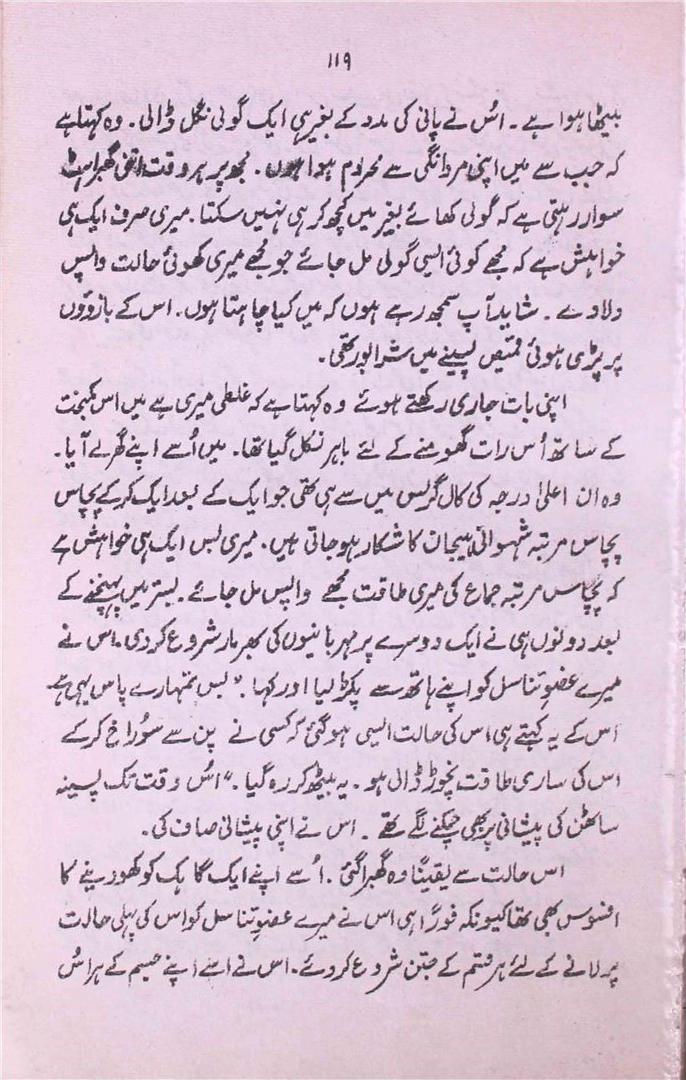 ۱۱۹
بیٹھا ہوا ہے۔ اس نے پانی کی مدد کے بغیر ہی ایک گولی نگل ڈالی۔ وہ کہتا ہے
کہ جب سے میں اپنی مردانگی سے محروم ہوا ہوں۔ مجھ پر ہر وقت اتنی گھبراہٹ
سوار رہتی ہے کہ گولی کھائے بغیر میں کچھ کر ہی نہیں سکتا۔ میری صرف ایک ہی
خواہش ہے کہ مجھے کوئی ایسی گولی مل جائے جو مجھے میری کھوئی حالت واپس
دلاوے۔ شاید آپ سمجھ رہے ہوں کہ میں کیا چاہتا ہوں۔ اس کے بازوؤں
پر پڑی ہوئی قمیص پسینے میں شرابور تھی۔
اپنی بات جاری رکھتے ہوئے وہ کہتا ہے کہ غلطی میری ہے میں اس کمبخت
کے ساتھ اُس رات گھومنے کے لئے باہر نکل گیا تھا۔ میں اُسے اپنے گھر لے آیا۔
وہ ان اعلیٰ درجہ کی کال گرلس میں سے ہی تھی جو ایک کے بعد ایک کر کے پچاس
پچاس مرتبہ شہوانی ہیجان کا شکار ہو جاتی ہیں۔ میری بس ایک ہی خواہش ہے
کہ پچاس مرتبہ جماع کی میری طاقت مجھے واپس مل جائے۔ بستر میں پہنچنے کے
بعد دونوں ہی نے ایک دوسرے پر مہربانیوں کی بھرمار شروع کر دی۔ اس نے
میرے عضوِ تناسل کو اپنے ہاتھ سے پکڑ لیا اور کہا۔ "بس تمہارے پاس یہی ہے
اس کے یہ کہتے ہی اس کی حالت ایسی ہو گئی کہ کسی نے پن سے سوراخ کر کے
اس کی ساری طاقت نچوڑ ڈالی ہو۔ یہ بیٹھ کر رہ گیا۔" اُس وقت تک پسینہ
ساٹھن کی پیشانی پر بھی چمکنے لگے تھے۔ اس نے اپنی پیشانی صاف کی۔
اس حالت سے یقیناً وہ گھبرا گئی۔ اُسے اپنے ایک گاہک کو کھو دینے کا
افسوس بھی تھا کیونکہ فوراً ہی اس نے میرے عضوِ تناسل کو اس کی پہلی حالت
پر لانے کے لئے ہر قسم کے جتن شروع کر دئے۔ اس نے اسے اپنے جسم کے ہر اس